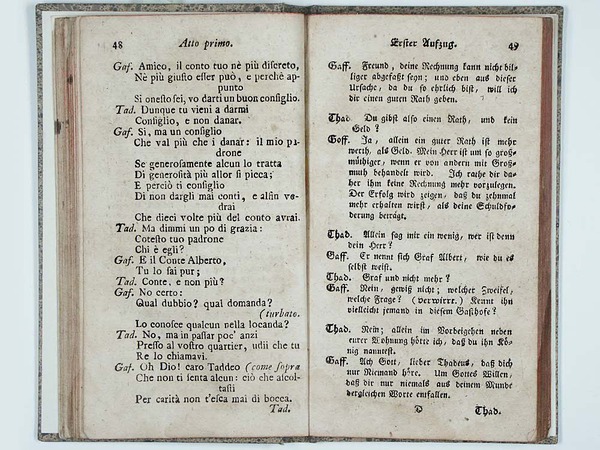 48
Atto primo.
Gaf. Amico, il conto tuo nè più discreto,
Nè più giusto esser può, e perchè ap-
punto
Si onesto sei, vo darti un buon consiglio.
Tad. Dunque tu vieni a darmi
Consiglio, e non danar.
Gaf. Sì, ma un consiglio
Che val più che i danar: il mio pa-
drone
Se generosamente alcun lo tratta
Di generosità più allor si picca;
E perciò ti consiglio
Di non dargli mai conti, e alfin ve-
drai
Che dieci volte più del conto avrai.
Tad. Ma dimmi un po di grazia:
Cotesto tuo padrone
Chi è egli?
Gaf. E il Conte Alberto,
Tu lo sai pur;
Tad. Conte, e non più?
Gaf. No certo:
Qual dubbio? qual domanda?
(turbato.
Lo conosce qualcun nella locanda?
Tad. No, ma in passar poc' anzi
Presso al vostro quartier, udii che tu
Re lo chiamavi.
Gaf. Oh Dio! caro Taddeo (come sopra
Che non ti senta alcun: ciò che ascol-
tasti
Per carità non t'esca mai di bocca.
Tad.
Erster Aufzug.
49
Gaff. Freund, deine Rechnung kann nicht bil-
liger abgefaßt seyn; und eben aus dieser
Ursache, da du so ehrlich bist, will ich
dir einen guten Rath geben.
Thad. Du gibst also einen Rath, und kein
Geld?
Goff. Ja, allein ein guter Rath ist mehr
werth, als Geld. Mein Herr ist um so groß-
müthiger, wenn er von andern mit Groß-
muth behandelt wird. Ich rathe dir da-
her ihm keine Rechnung mehr vorzulegen.
Der Erfolg wird zeigen, daß du zehnmal
mehr erhalten wirst, als deine Schuldfo-
derung beträgt.
Thad. Allein sag mir ein wenig, wer ist denn
dein Herr?
Gaff. Er nennt sich Graf Albert, wie du es
selbst weist.
Thad. Graf und nicht mehr?
Gaff. Nein, gewiß nicht; welcher Zweifel,
welche Frage? (verwirrt.) Kennt ihn
vielleicht jemand in diesem Gasthofe?
Thad. Nein; allein im Vorbeigehen neben
eurer Wohnung hörte ich, daß du ihn Kö-
nig nanntest.
Gaff. Ach Gott, lieber Thadeus, daß dich
nur Niemand höre. Um Gottes Willen,
daß dir nur niemals aus deinem Munde
dergleichen Worte entfallen.
D
Thad.